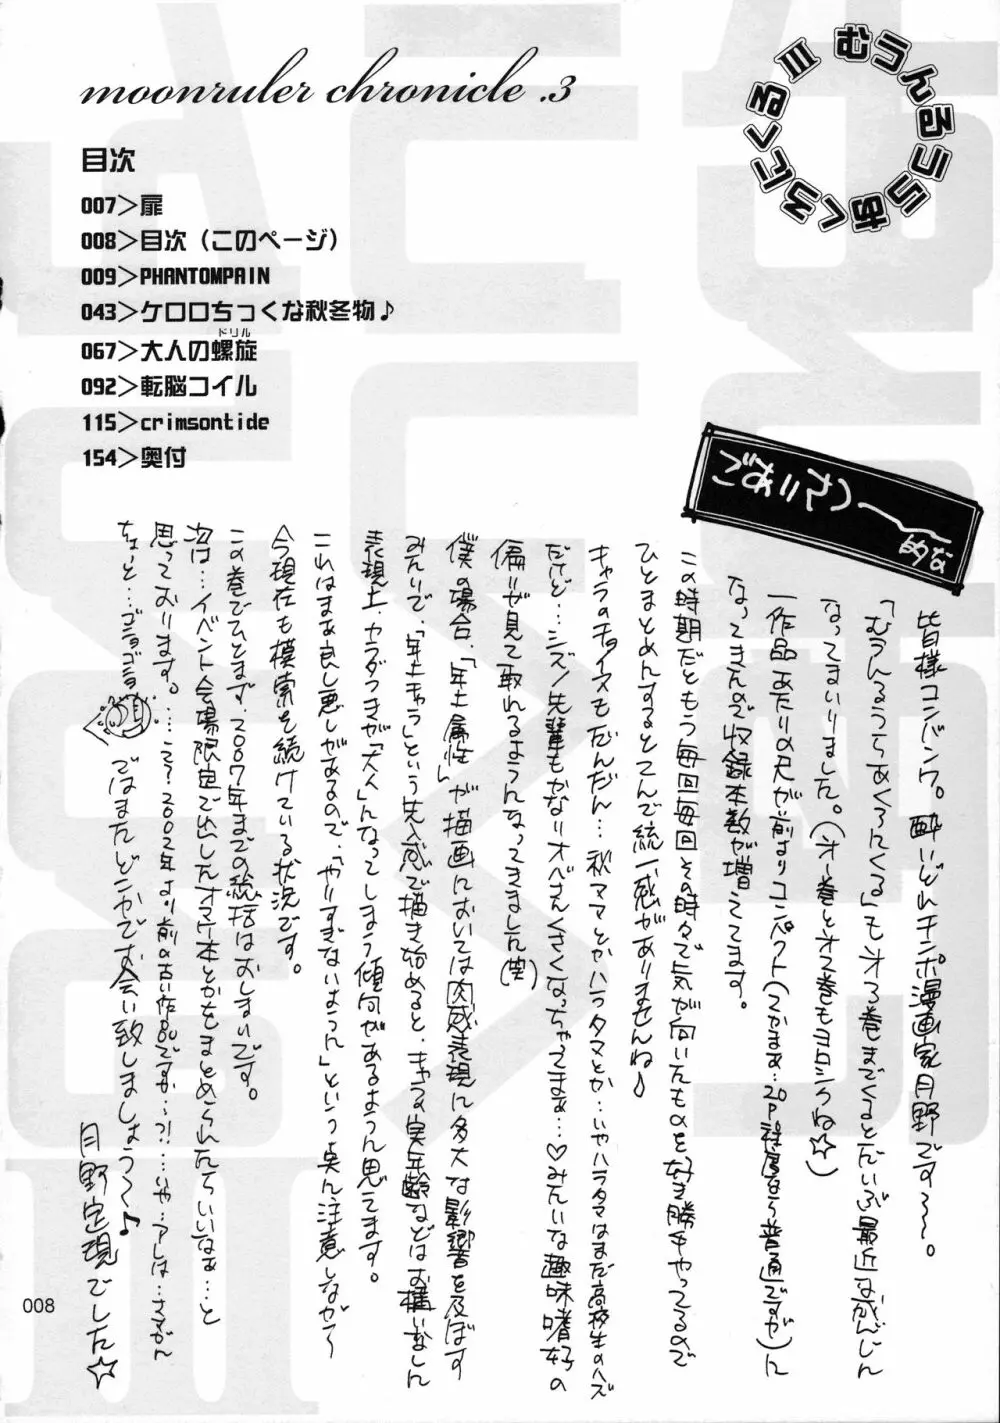 moonruler chronicle .3
むうんるうらあくろにくるⅢ
目次
007＞扉
008＞目次（このページ）
009＞PHANTOMPAIN
043＞ケロロちっくな秋冬物♪
067＞大人の螺旋
ドリル
092＞転脳コイル
115＞crimsontide
154＞奥付
ごあいさつ〜
的な
皆様コンバンワ。酔いどれチンポ漫画家月野です〜〜。
「むうんるうらあくろにくる」もオ3巻までくるとだいぶ最近なかんじに
なってまいりました。（オ1巻とオ2巻もヨロシクね☆）
一作品あたりの尺が前よりコンパクト（てかまぁ‥20P程度なら普通ですが）に
なってきたので収録本数が増ってます。
この時期だともう毎回毎回その時々で気が向いたものを好き勝手やってるので
ひとまとめにするとてんで統一感がありませんね♪
キャラのチョイスもなんだか…秋ママとかハラタマとか…いやハラタマはまだ高校生のハズ
だけど…シズノ先輩もかなりオバさんくさくなっちゃってまぁ…♡みたいな趣味嗜好の
偏りが見て取れるようになってきました（笑）
僕の場合、「年上属性」が描画においては肉感表現に多大な影響を及ぼす
みたいで、「年上キャラ」という先入感で描き始めると、キャラの実年齢などはお構いなしに
表現上、カラダつきが「大人」になってしまう傾向があるように思えます。
これはまぁ良し悪しがあるので、「やりすぎないように」という点に注意しながら〜
今現在も模索を続けている状況です。
この巻でひとまず、2007年までの総括はおしまいです。
次は…イベント会場限定で出したオマケ本とかをまとめられたらいいなぁ…と
思っております。……え？2002年より前の古い作品ですか…？！…いや…アレは…さすがに
ちょっと…ゴニョゴニョ
ではまたどこかでお会い致しましょう〜♪
月野定規でした☆
008